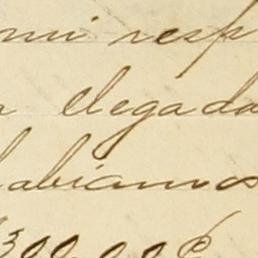 mi resp
a llegada
habiamos
300.00